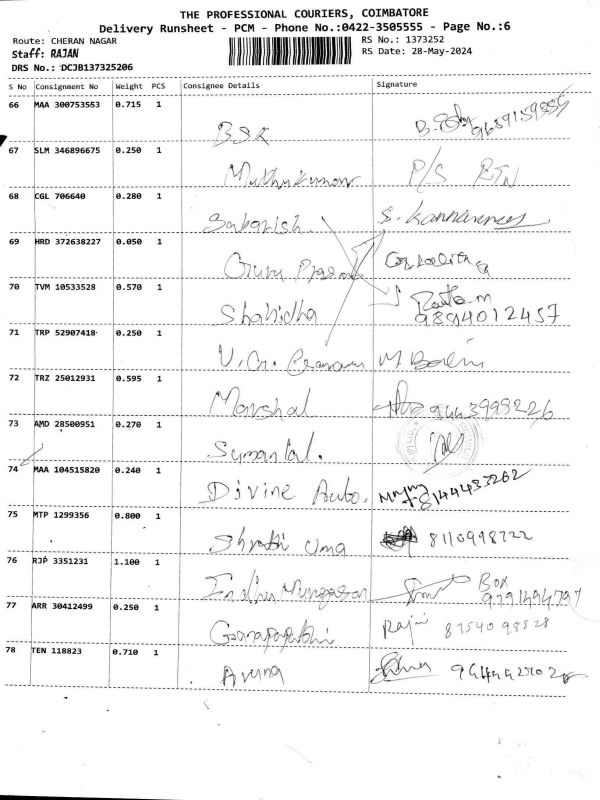 THE PROFESSIONAL COURIERS, COIMBATORE
Delivery Runsheet - PCM - Phone No.:0422-3505555 - Page No.:6
Route: CHERAN NAGAR RS No.: 1373252
Staff: RAJAN RS Date: 28-May-2024
DRS No.: DCJB137325206
S No Consignment No Weight PCS Consignee Details Signature
66 MAA 300753553 0.715 1
BSK 9659159555
67 SLM 346896675 0.250 1
Muthukumar P/S RTN
68 CGL 706640 0.280 1
Sabarish. S. Kannammal
69 HRD 372638227 0.050 1
Guru Prasma
70 TVM 10533528 0.570 1
Shahidha
9894012457
71 TRP 52907418 0.250 1
V.G. M
72 TRZ 25012931 0.595 1
Marshal 9443999226
73 AMD 28500951 0.270 1
Sumanlal.
74 MAA 104515820 0.240 1
Divine Auto. 8144433262
75 MTP 1299356 0.800 1
Shruthi Uma 8110998722
76 RJP 3351231 1.100 1
Indhu Murugasan Box
9791494797
77 ARR 30412499 0.250 1
Ganapapathi Raji 8754098828
78 TEN 118823 0.710 1
Aruna